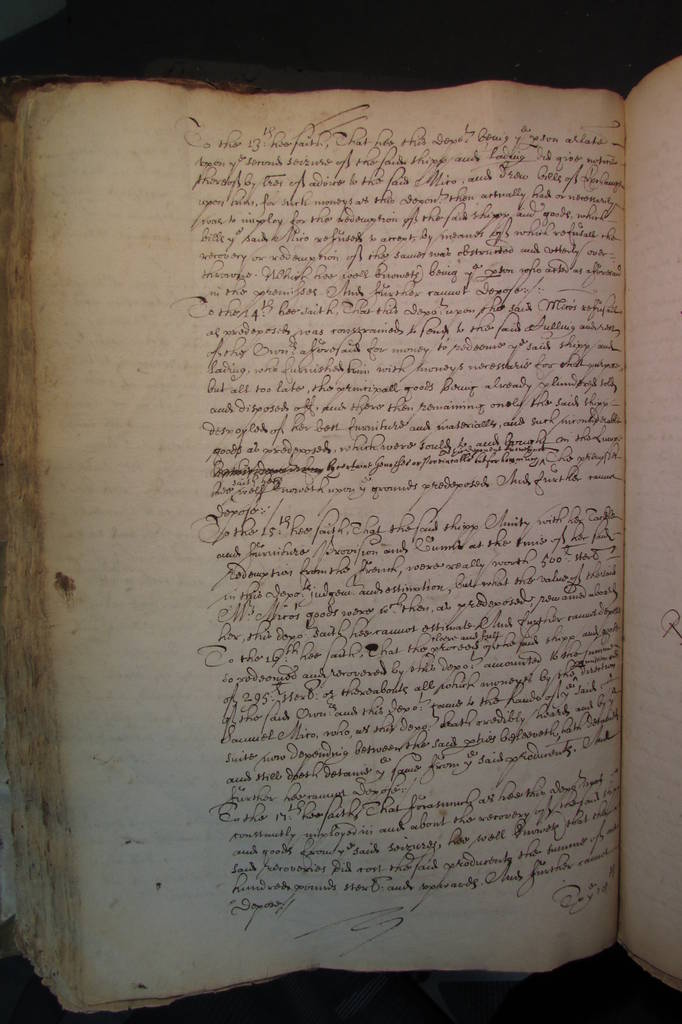 To the 13:th hee saith, That hee this depo:t being ye person as late
upon ye second seizure of the said shipp and lading did give notice
thereof by lres of advice to the said Mico, and drew bills of Exchange
upon him, for such moneys as this depon:t then actually had or necessarily
was to imploy for the redemption of the said shipp and goods, which
bills ye said Mico refused to accept, by meanes of which refusall the
recovery or redemption of the same was obstructed and utterly over=
throwne. Which hee well knoweth being ye person who acted as aforesaid
in the premisses. And further cannot depose:/:
To the 14:th hee saith, That this depo:t upon the said Mico's refusall
as predeposed, was constrained to send to the said Pulling and rest
of the Own:rs aforesaid for money to redeeme ye said shipp and
lading, who furnished him with moneys necessarie for that purpose
but all too late, the principall goods being already plundered sold
and disposed off, and there then remaining onely the said shipp
despoyled of her best furniture and materialls, and such inconsiderable
goods as predeposed, which were sould and bought in the lump
by certaine The premisses
hee well knoweth upon ye grounds predeposed And further cannot
depose:/
To the 15:th hee saith, That the said shipp Amity with her Tackle
and furniture Provision and Gunns at the time of her said
Redemption from the French, were really worth 500:li sterl:
in this depo:ts judgem:t and estimation, but what the value of the said
Mr Mico's goods were w:ch then, as predeposed, remained aboard
her, this depo:t saith hee cannot estimate, And further cannot depose
To the 16:th hee saith, That the proceed of the said shipp and goods
so redeemed and recovered by this depo:t amounted to the summe
of 295:li sterl: or thereabouts all which moneyes by the direction
of the said Own:rs and this depo:t came to the hands of ye said
Samuel Mico, who, as this depo:t hath credibly heard and by ye
suite now depending between the said parties beleeveth, hath detained
and still doeth detaine ye same from ye said producents. And
further hee cannot depose:/
To the 17:th hee saith, That forasmuch as hee this depo:t was
constantly imployed in and about the recovery of the said shipp
and goods from ye said seizures, hee well knoweth that the
said recoveries did cost the said producents the summe of
hundred pounds sterl: and upwards. And further cannot
depose:/
To ye 18